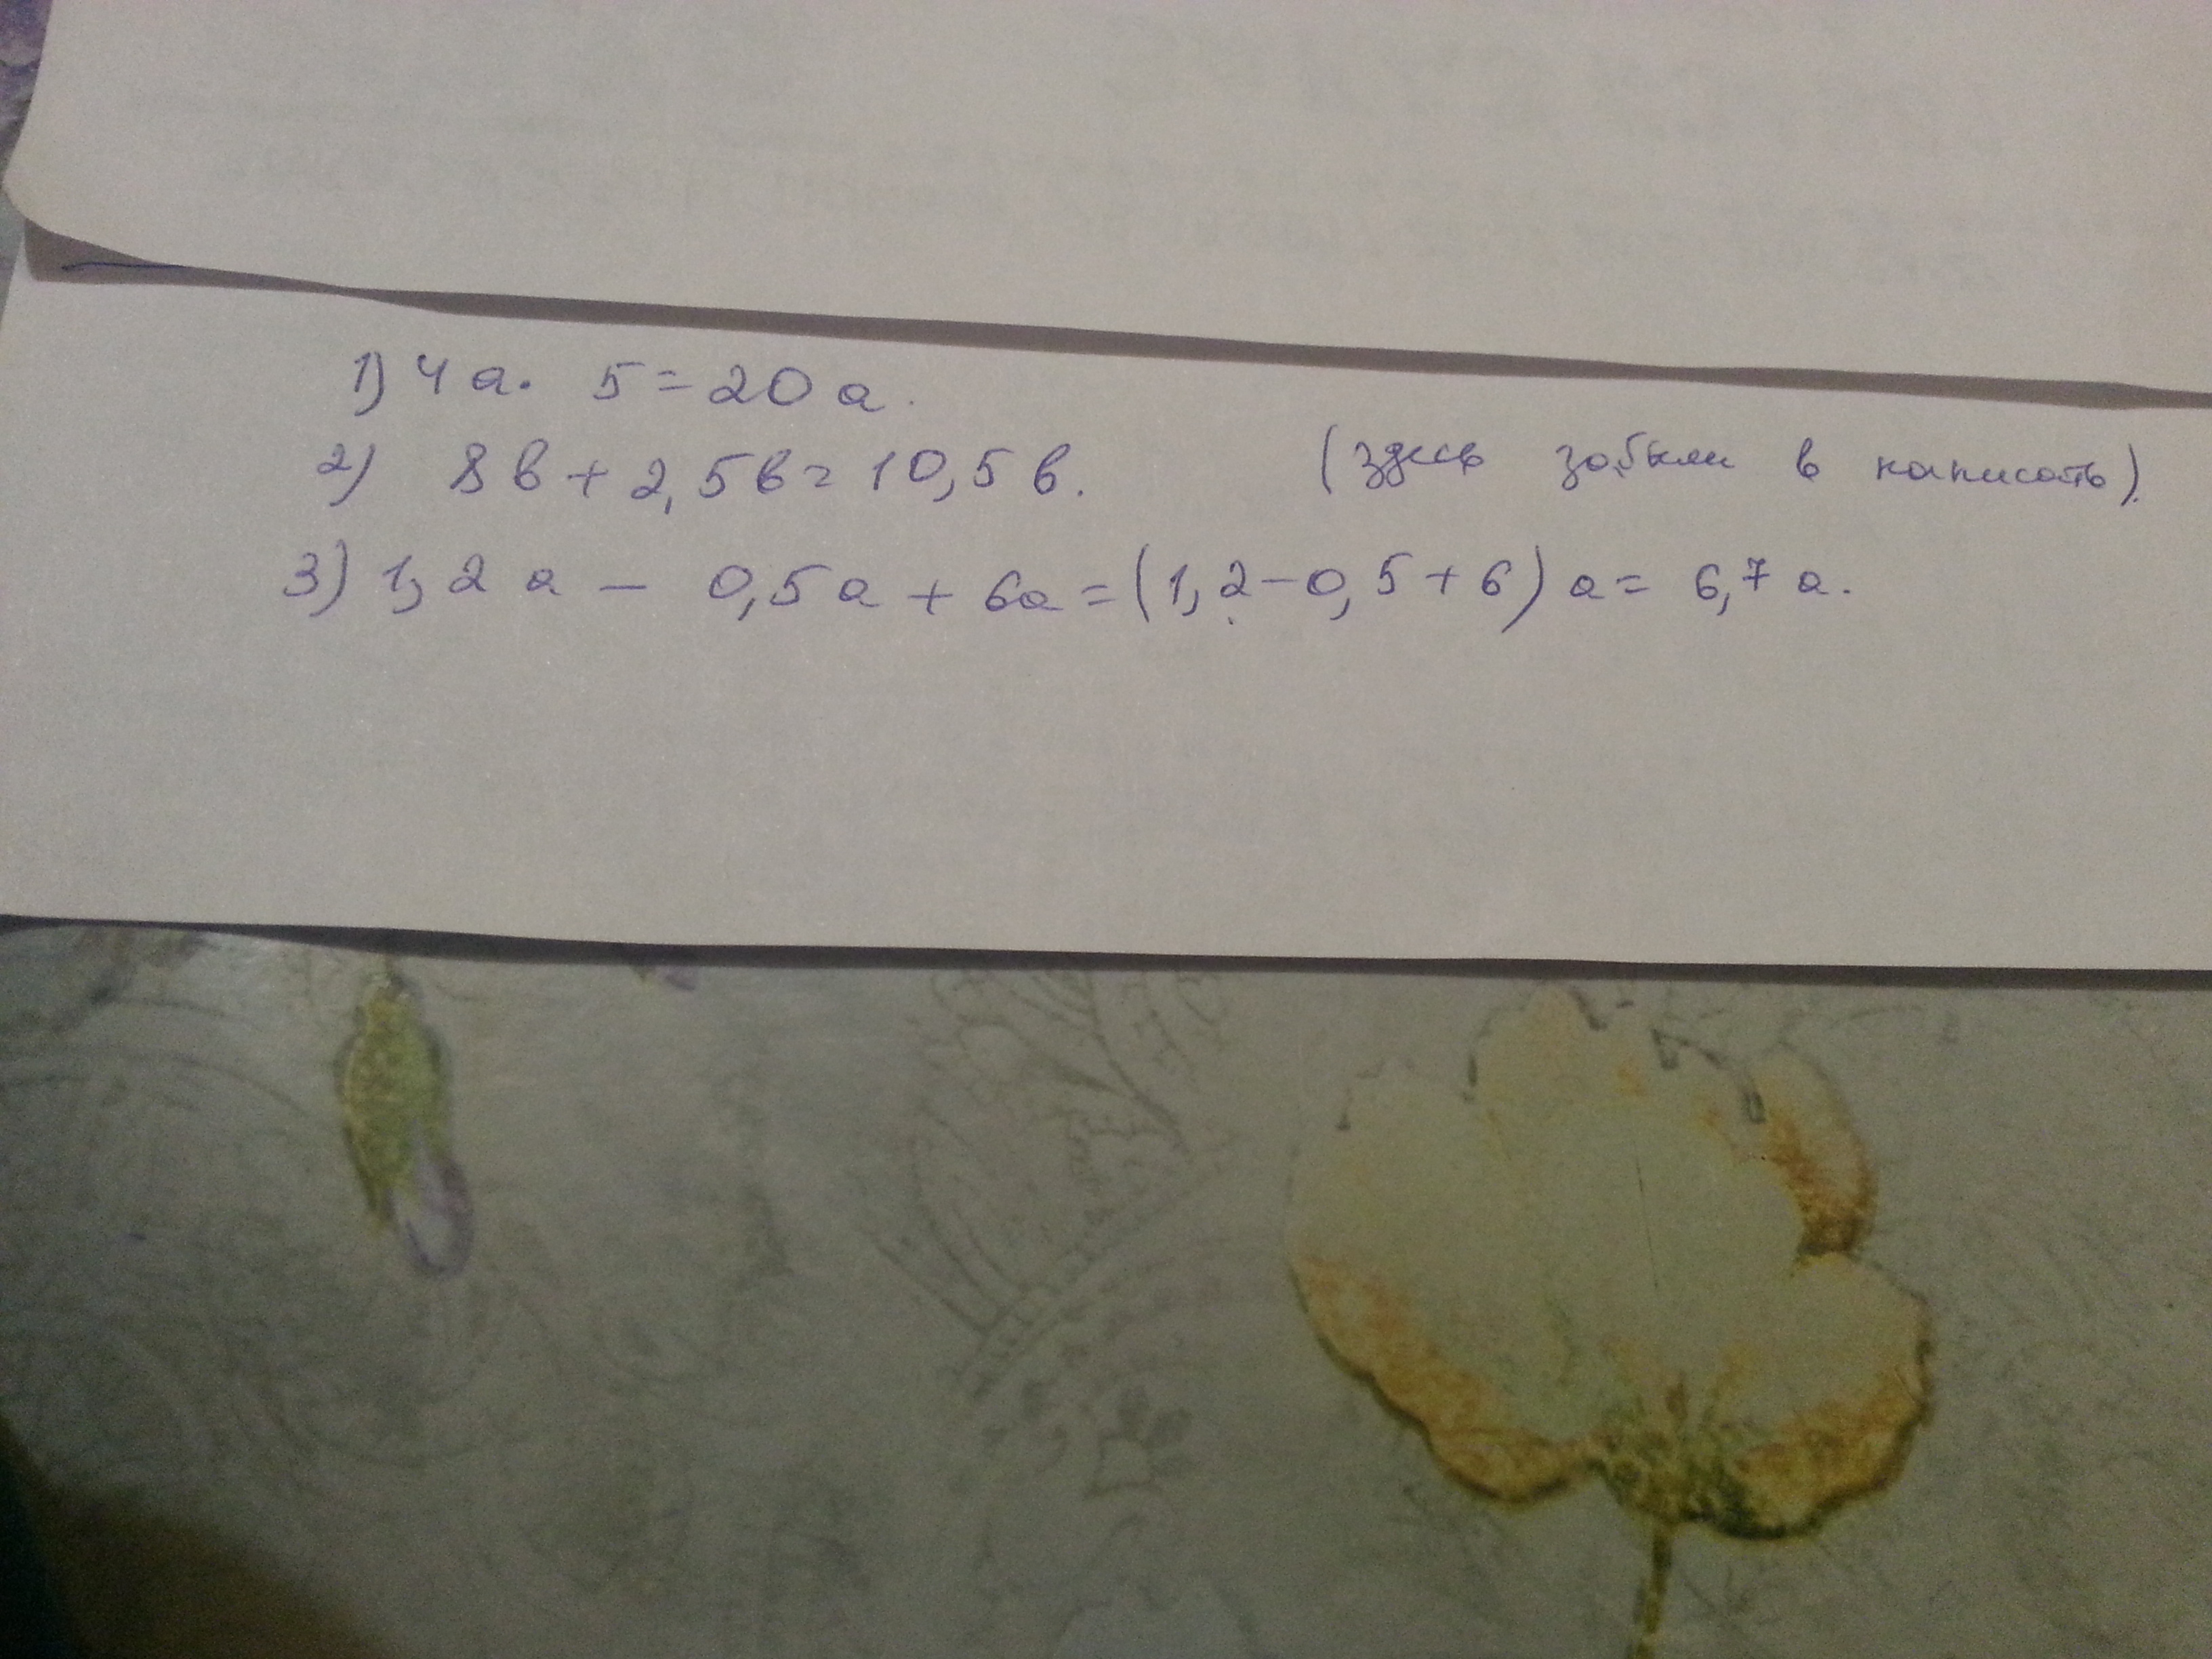 1) 4а · 5 = 20а.
2) 8в + 2,5в = 10,5в. (здесь забыли в написать).
3) 1,2а - 0,5а + 6а = (1,2 - 0,5 + 6) а = 6,7 а.